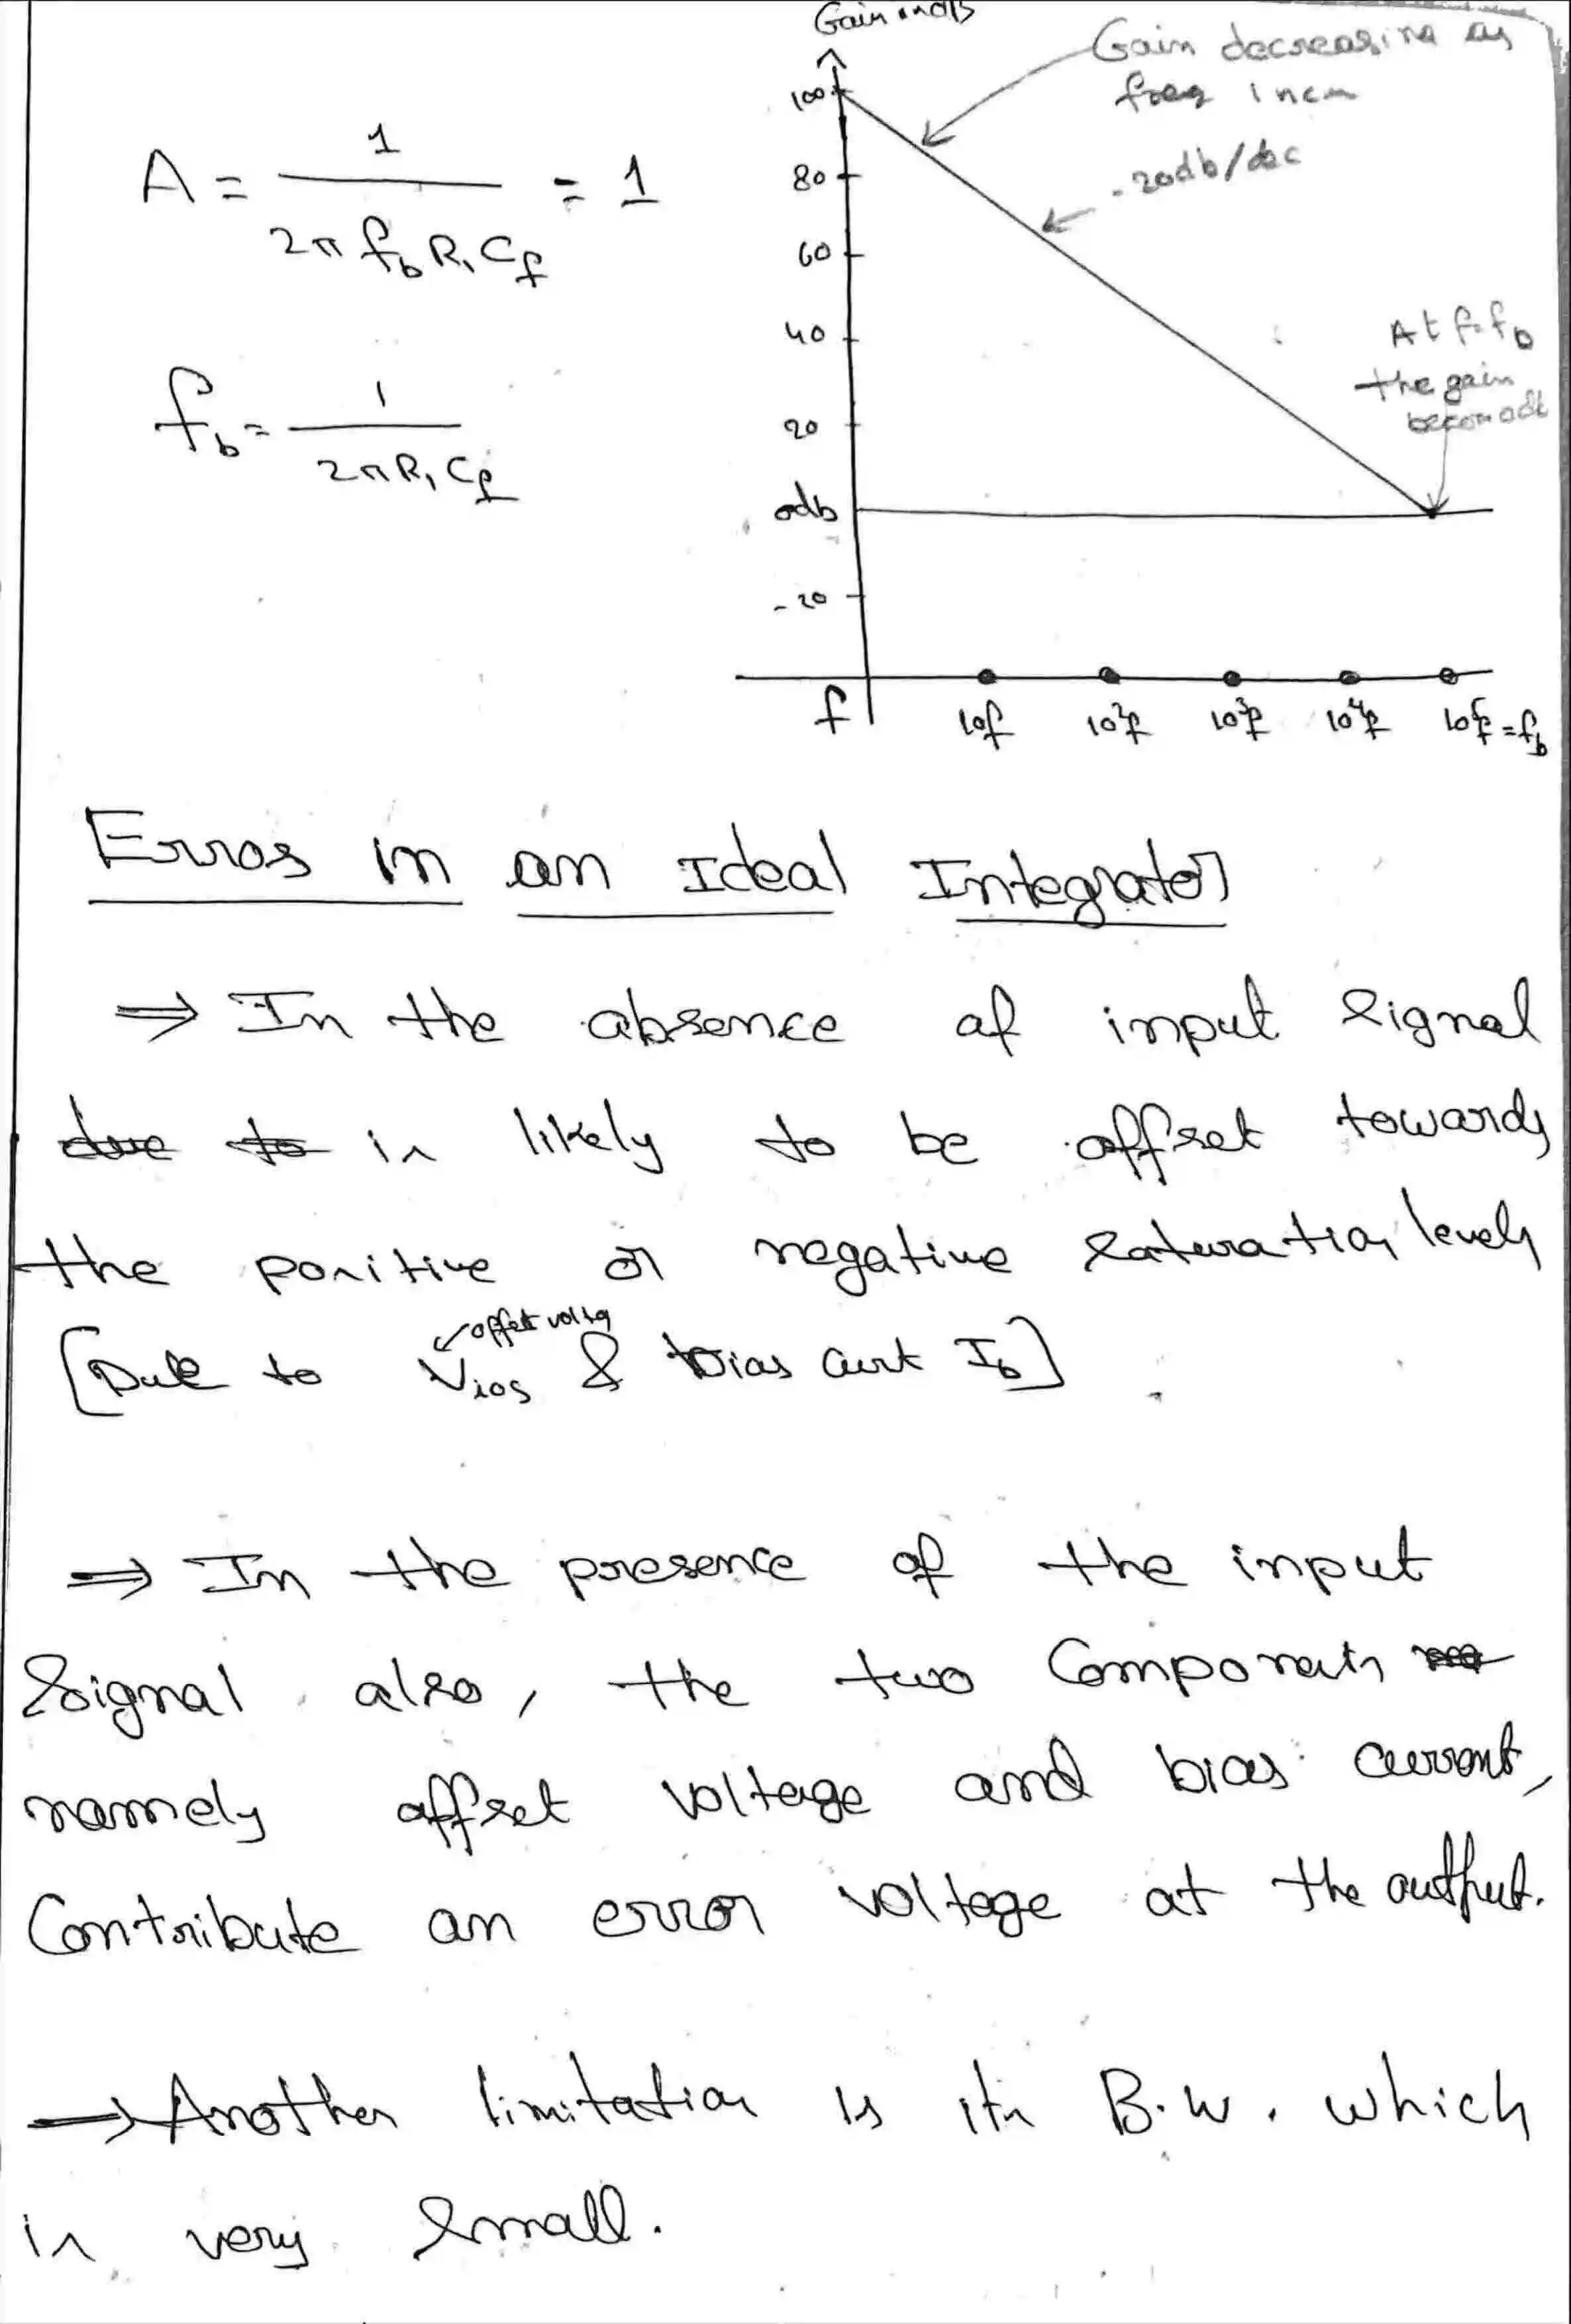 Gain in db
Gain decreasing as
freq incr
-20db/dec
100
80
60
40
20
0db
-20
At f=fb
the gain
becom 0db
f 10f 10²f 10³f 10⁴f 10⁵f = fb
A = 1 / 2π fb R1 Cf = 1
fb = 1 / 2π R1 Cf
Erros in an Ideal Integrator
⇒ In the absence of input signal
due to is likely to be offset towards
the positive or negative saturation levels
offset voltg
[Due to Vios & bias curt Ib]
⇒ In the presence of the input
signal also, the two components
namely offset voltage and bias current,
Contribute an error voltage at the output.
→ Another limitation is its B.W. which
is very small.